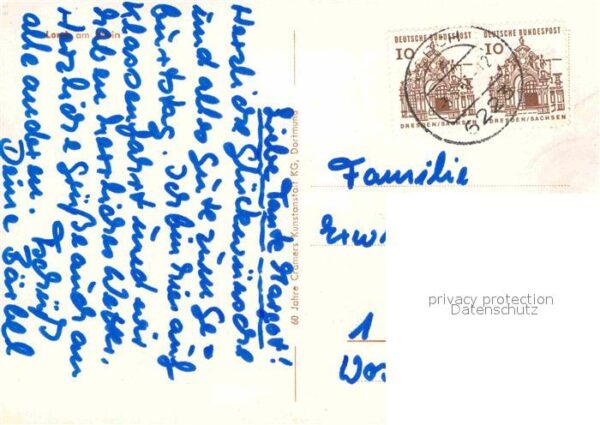 Lorch am Rhein
Liebe Tante Margot!
Herzliche Glückwünsche
und alles Gute zum Ge-
burtstag. Ich bin hier auf
Klassenfahrt und wir
haben herrliches Wetter.
Herzliche Grüße auch an
alle anderen. Tschüß
Deine Bärbel
60 Jahre Cramers Kunstanstalt KG, Dortmund
DEUTSCHE BUNDESPOST
10
DRESDEN/SACHSEN
DEUTSCHE BUNDESPOST
10
DRESDEN/SACHSEN
LORCH
6223
Familie
Erw
1
Wor
privacy protection
Datenschutz